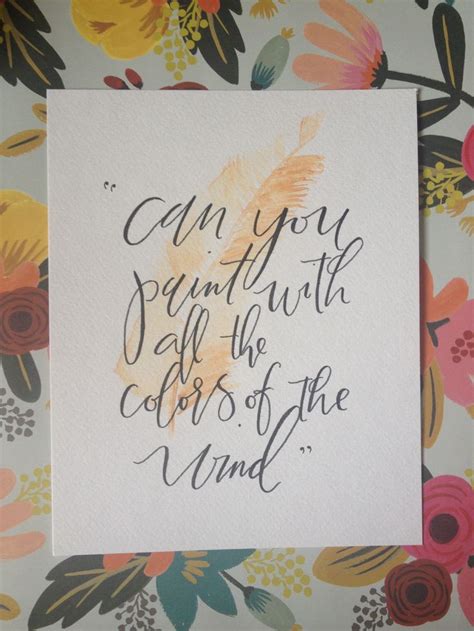 "can you
paint with
all the
colors of the
wind"